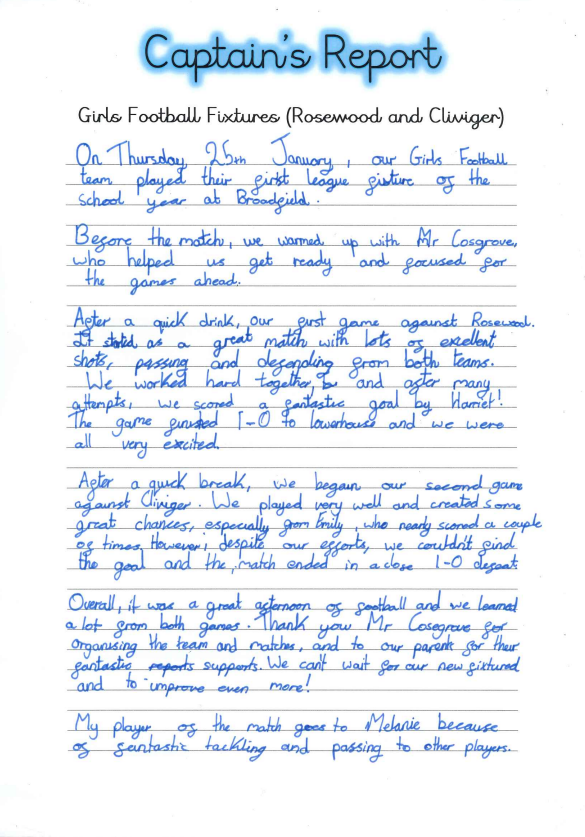 Captain's Report
Girls Football Fixtures (Rosewood and Cliviger)
On Thursday 25th January, our Girls Football
team played their first league fixture of the
school year at Broadfield.
Before the match, we warmed up with Mr Cosgrove,
who helped us get ready and focused for
the games ahead.
After a quick drink, our first game against Rosewood.
It started as a great match with lots of excellent
shots, passing and defending from both teams.
We worked hard together, and after many
attempts, we scored a fantastic goal by Harriet!
The game finished 1-0 to lowerhouse and we were
all very excited.
After a quick break, we began our second game
against Cliviger. We played very well and created some
great chances, especially from Emily, who nearly scored a couple
of times. However, despite our efforts, we couldn't find
the goal and the match ended in a close 1-0 defeat
Overall, it was a great afternoon of football and we learned
a lot from both games. Thank you Mr Cosegrove for
organising the team and matches, and to our parents for their
fantastic supports. We can't wait for our new fixtured
and to improve even more!
My player of the match goes to Melanie because
of fantastic tackling and passing to other players.